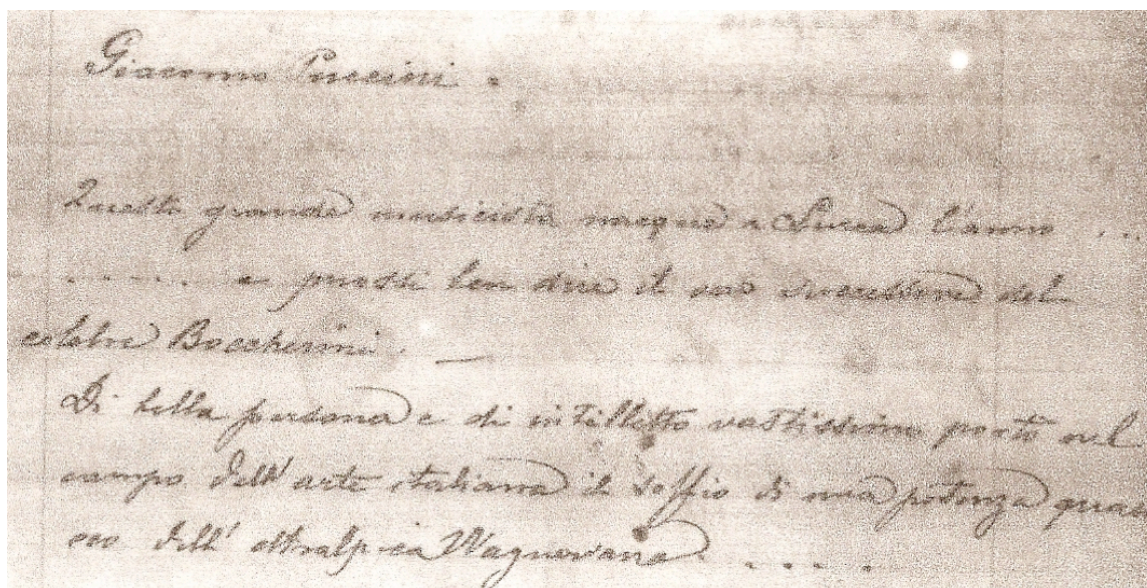 Giacomo Puccini.
Questo grande musicista nacque a Lucca l'anno ...
...... e puossi ben dire il successore del
celebre Boccherini. —
Di bella persona e di intelletto vastissimo portò nel
campo dell'arte italiana il soffio di una potenza quasi
dell'oltralpica Wagneriana .....